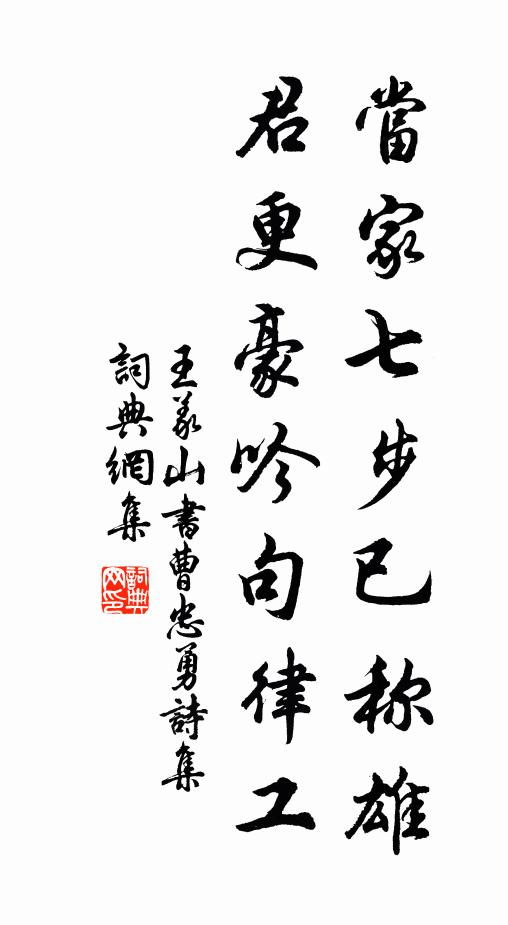 當家七步已称雄
君更豪吟句律工
王義山書曹忠勇詩集
詞典網集
詞典
网印